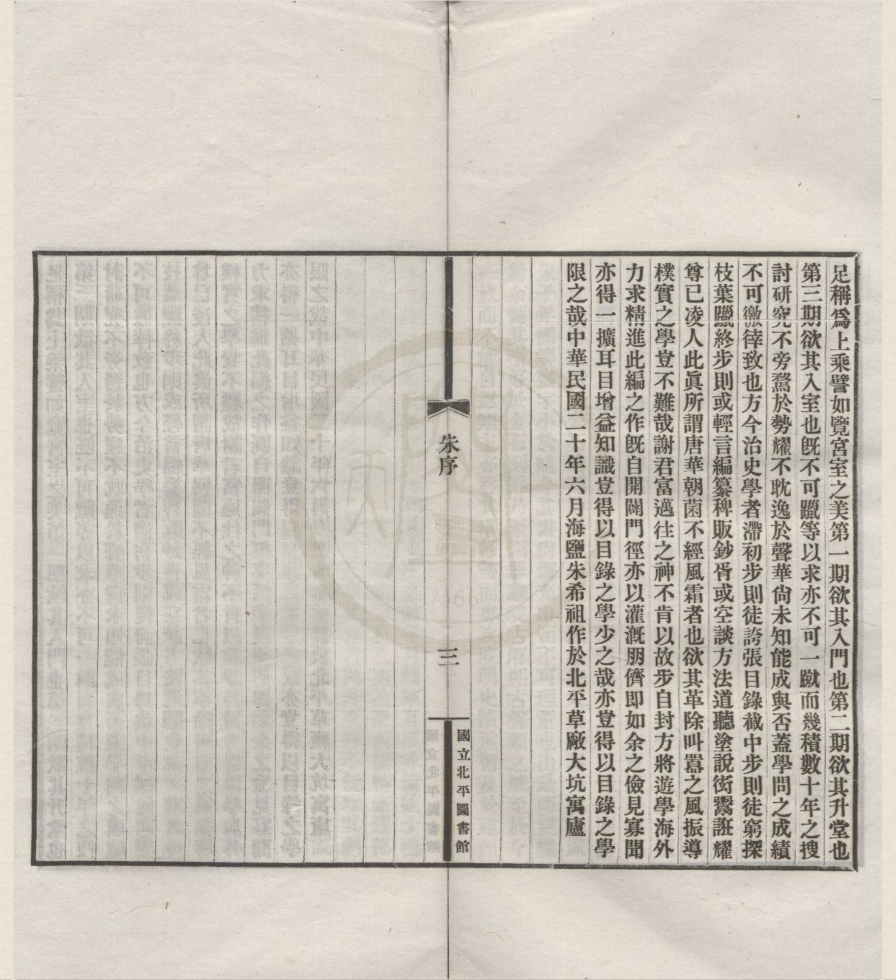 足稱爲上乘譬如覽宮室之美第一期欲其入門也第二期欲其升堂也
第三期欲其入室也旣不可躐等以求亦不可一蹴而幾積數十年之搜
討研究不旁鶩於勢耀不耽逸於聲華尙未知能成與否蓋學問之成績
不可徼倖致也方今治史學者滯初步則徒誇張目錄截中步則徒窮探
枝葉躐終步則或輕言編纂稗販鈔胥或空談方法道聽塗說衒鬻誑耀
尊已凌人此眞所謂唐華朝菌不經風霜者也欲其革除叫囂之風振導
樸實之學豈不難哉謝君富邁往之神不肯以故步自封方將遊學海外
力求精進此編之作旣自開闢門徑亦以灌漑朋儕即如余之儉見寡聞
亦得一擴耳目增益知識豈得以目錄之學少之哉亦豈得以目錄之學
限之哉中華民國二十年六月海鹽朱希祖作於北平草廠大坑寓廬
朱序
三
國立北平圖書館